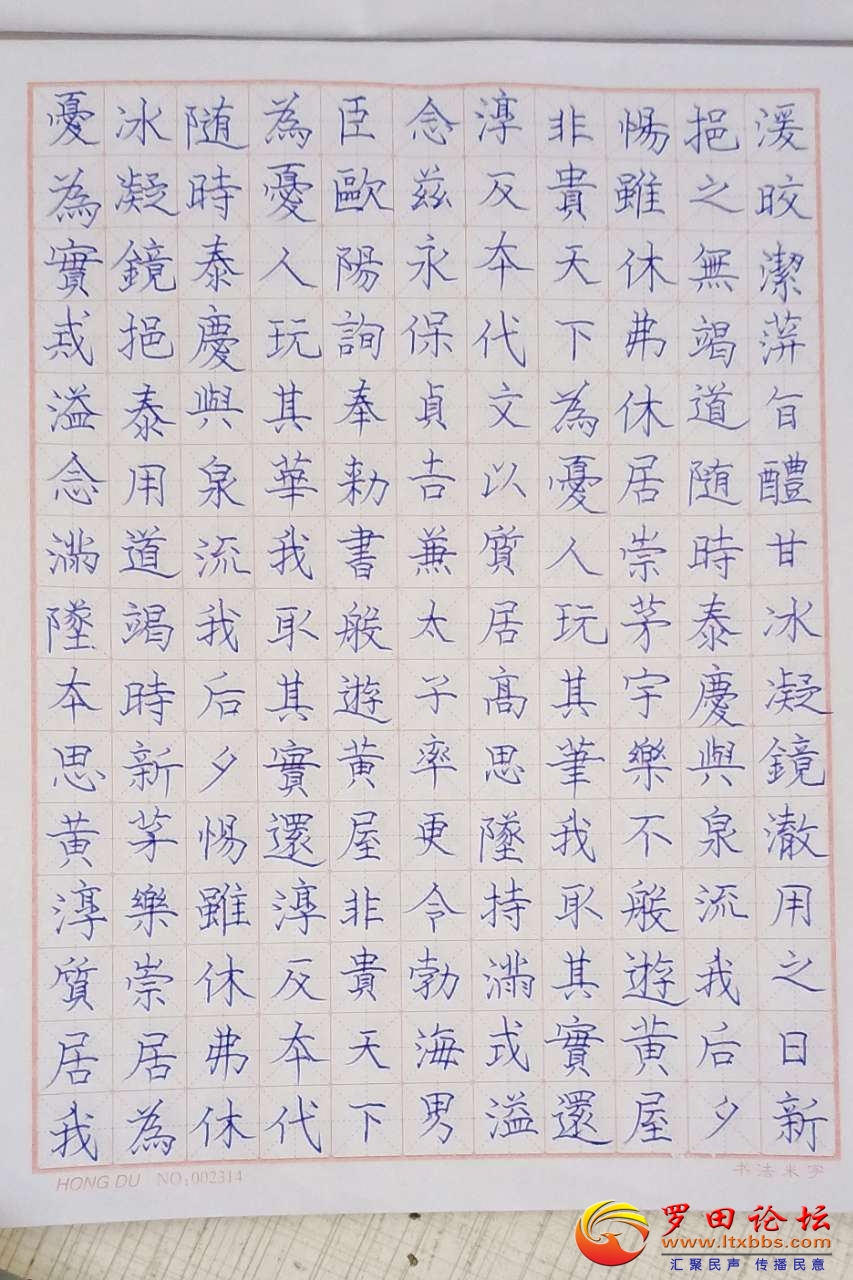 湲晈潔萍旨醴甘冰凝鏡澈用之日新
挹之無竭道随時泰慶與泉流我后夕
惕雖休弗休居崇茅宇樂不般遊黄屋
非貴天下為憂人玩其華我取其實還
淳反本代文以質居高思墜持滿戒溢
念兹永保貞吉兼太子率更令勃海男
臣歐陽詢奉勅書般遊黄屋非貴天下
為憂人玩其華我取其實還淳反本代
随時泰慶與泉流我后夕惕雖休弗休
冰凝鏡挹泰用道竭時新茅樂崇居為
憂為實戒溢念滿墜本思黄淳質居我
HONG DU NO:002314
书法米字
罗田论坛
www.ltxbbs.com
汇聚民声 传播民意